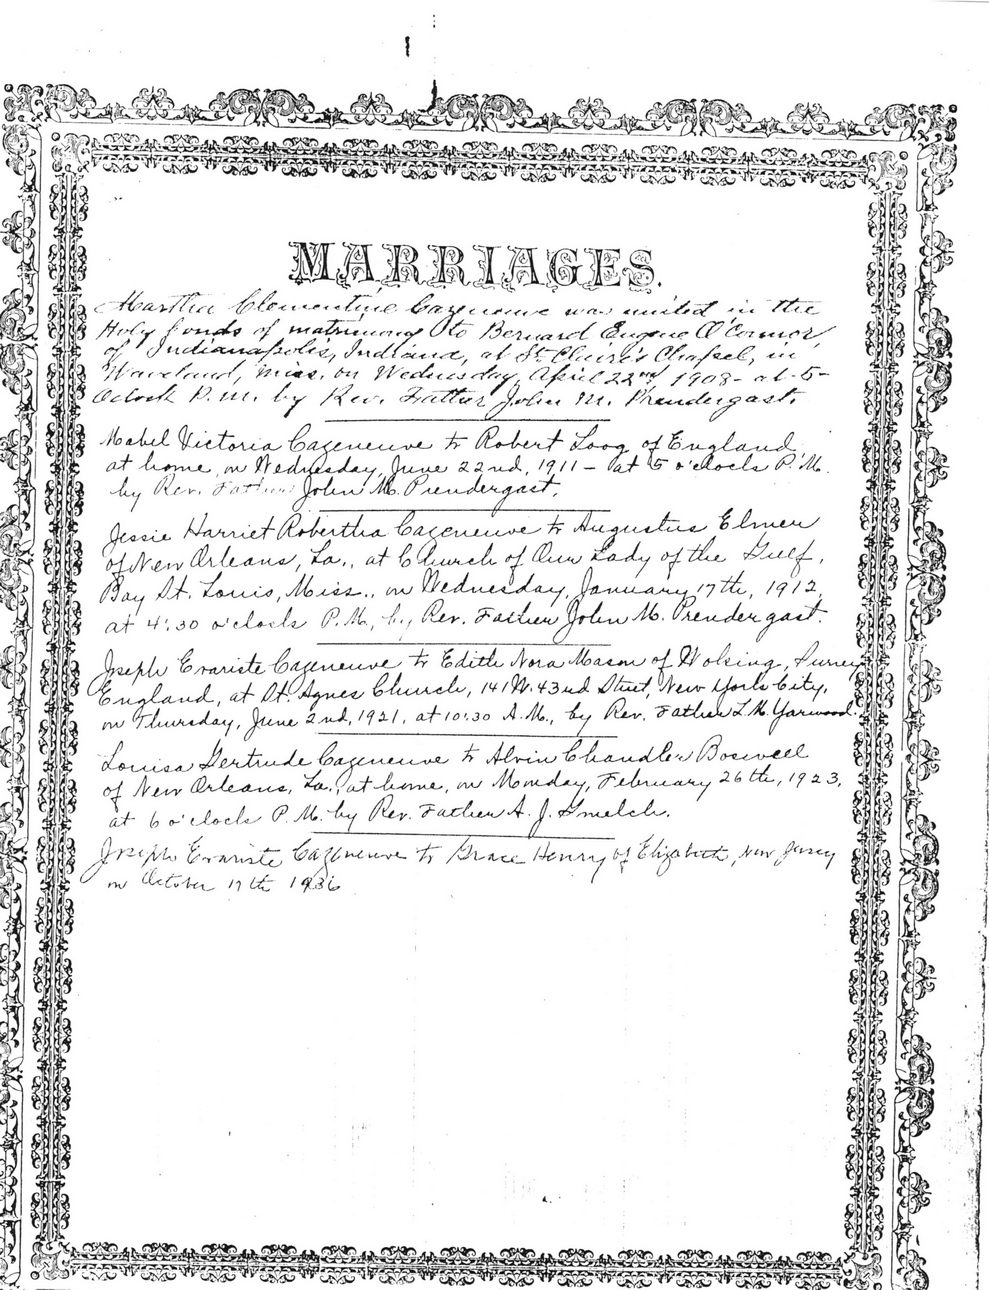 MARRIAGES.
Martha Clementine Cazeneuve was united in the
Holy bonds of matrimony to Bernard Eugene O'Connor,
of Indianapolis, Indiana, at St. Clare's Chapel, in
Waveland, Miss. on Wednesday, April 22nd, 1908- at-5-
Oclock P.M. by Rev. Father John M. Prendergast.
Mabel Victoria Cazeneuve to Robert Loog of England,
at home, on Wednesday, June 22nd, 1911- at 5 o'clock P.M.
by Rev. Father John M. Prendergast.
Jessie Harriet Robertha Cazeneuve to Augustus Elmer
of New Orleans, La., at Church of Our Lady of the Gulf,
Bay St. Louis, Miss., on Wednesday, January 17th, 1912,
at 4:30 o'clock P.M., by Rev. Father John M. Prendergast.
Joseph Evariste Cazeneuve to Edith Nora Mason of Wolsing, Surrey
England, at St. Agnes Church, 141 W. 43rd Street, New York City,
on Thursday, June 2nd, 1921, at 10:30 A.M., by Rev. Father L.H. Yarwood.
Louisa Gertrude Cazeneuve to Alvin Chandler Boswell
of New Orleans, La., at home, on Monday, February 26th, 1923,
at 6 o'clock P.M. by Rev. Father A. J. Gmelch.
Joseph Evariste Cazeneuve to Grace Henry of Elizabeth, New Jersey
on October 17th 1936